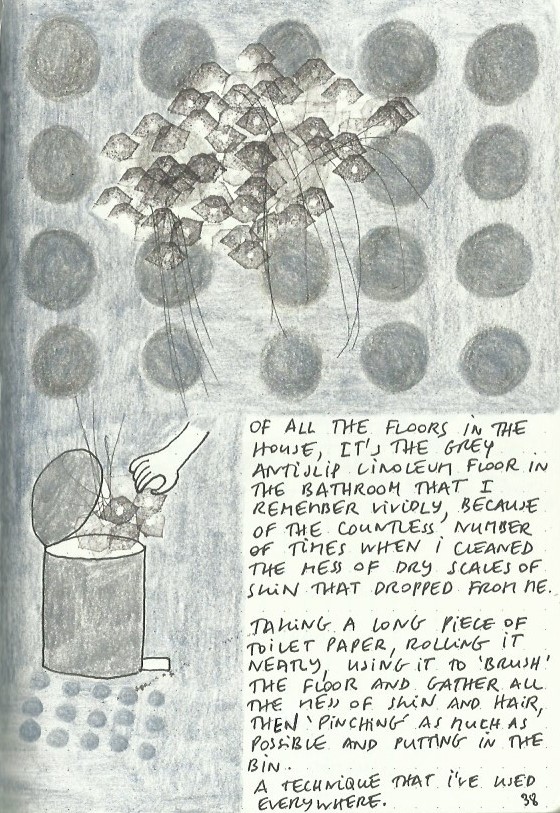 OF ALL THE FLOORS IN THE
HOUSE, IT'S THE GREY
ANTISLIP LINOLEUM FLOOR IN
THE BATHROOM THAT I
REMEMBER VIVIDLY, BECAUSE
OF THE COUNTLESS NUMBER
OF TIMES WHEN I CLEANED
THE MESS OF DRY SCALES OF
SKIN THAT DROPPED FROM ME.
TAKING A LONG PIECE OF
TOILET PAPER, ROLLING IT
NEATLY, USING IT TO 'BRUSH'
THE FLOOR AND GATHER ALL
THE MESS OF SKIN AND HAIR,
THEN 'PINCHING' AS MUCH AS
POSSIBLE AND PUTTING IN THE
BIN.
A TECHNIQUE THAT I'VE USED
EVERYWHERE.
38